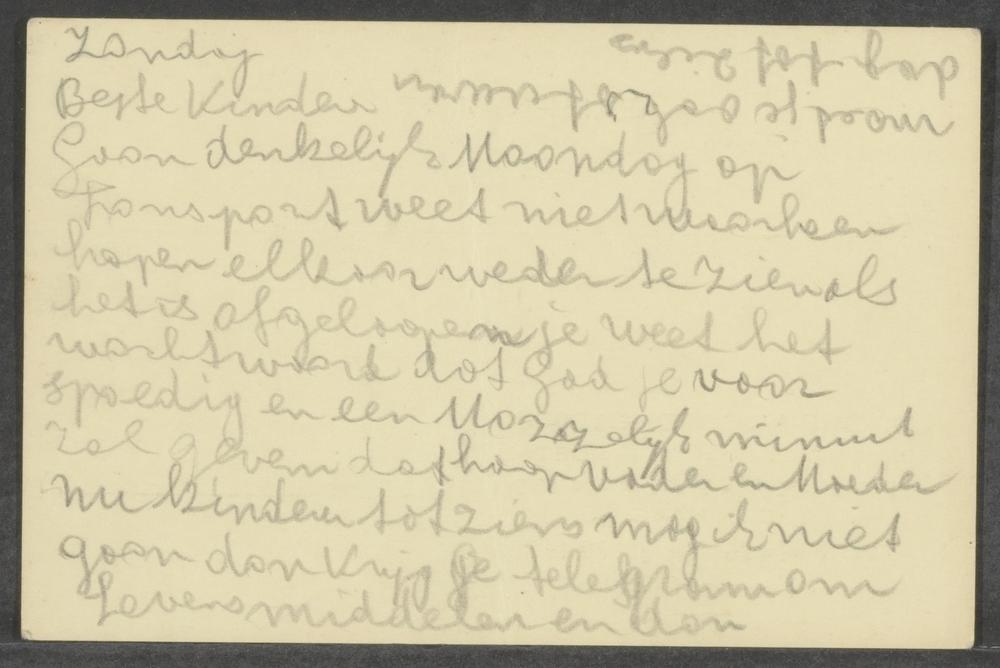 Zondag
Beste Kinder
Gaan denkelijk Maandag op
Transport weet niet waarheen
hopen elkaar weder te zien als
het is afgelopen je weet het
wachtwoord dat God je voor
spoedig en een Mazzelijk minuut
zal geven dat hoop Vader en Moeder
nu kinder tot ziens mag ik niet
gaan dan krijg je telegram om
Levensmiddelen en dan
moet je dat sturen
dag tot ziens